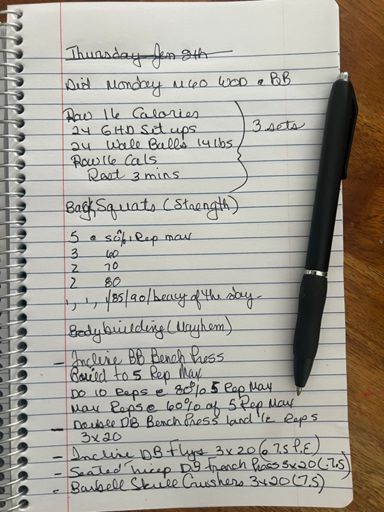 Thursday Jan 9th
Did Monday M60 WOD @ BB
Row 16 Calories
24 GHD Set ups
24 Wall Balls 14 lbs
Row 16 Cals
Rest 3 mins
3 sets
Back Squats (Strength)
5 @ 50% 1 Rep max
3 60
2 70
2 80
1, 1, 1/85/90/heavy of the day
Bodybuilding (Mayhem)
- Incline BB Bench Press
Build to 5 Rep Max
Do 10 Reps @ 80% 5 Rep Max
Max Reps @ 60% of 5 Rep Max
- Double DB Bench Press Reps
3x20
- Incline DB Flys 3x20 (@ 7.5 P.E)
- Seated Tricep DB French Press 3x20 (7.5)
- Barbell Skull Crushers 3x20 (7.5)